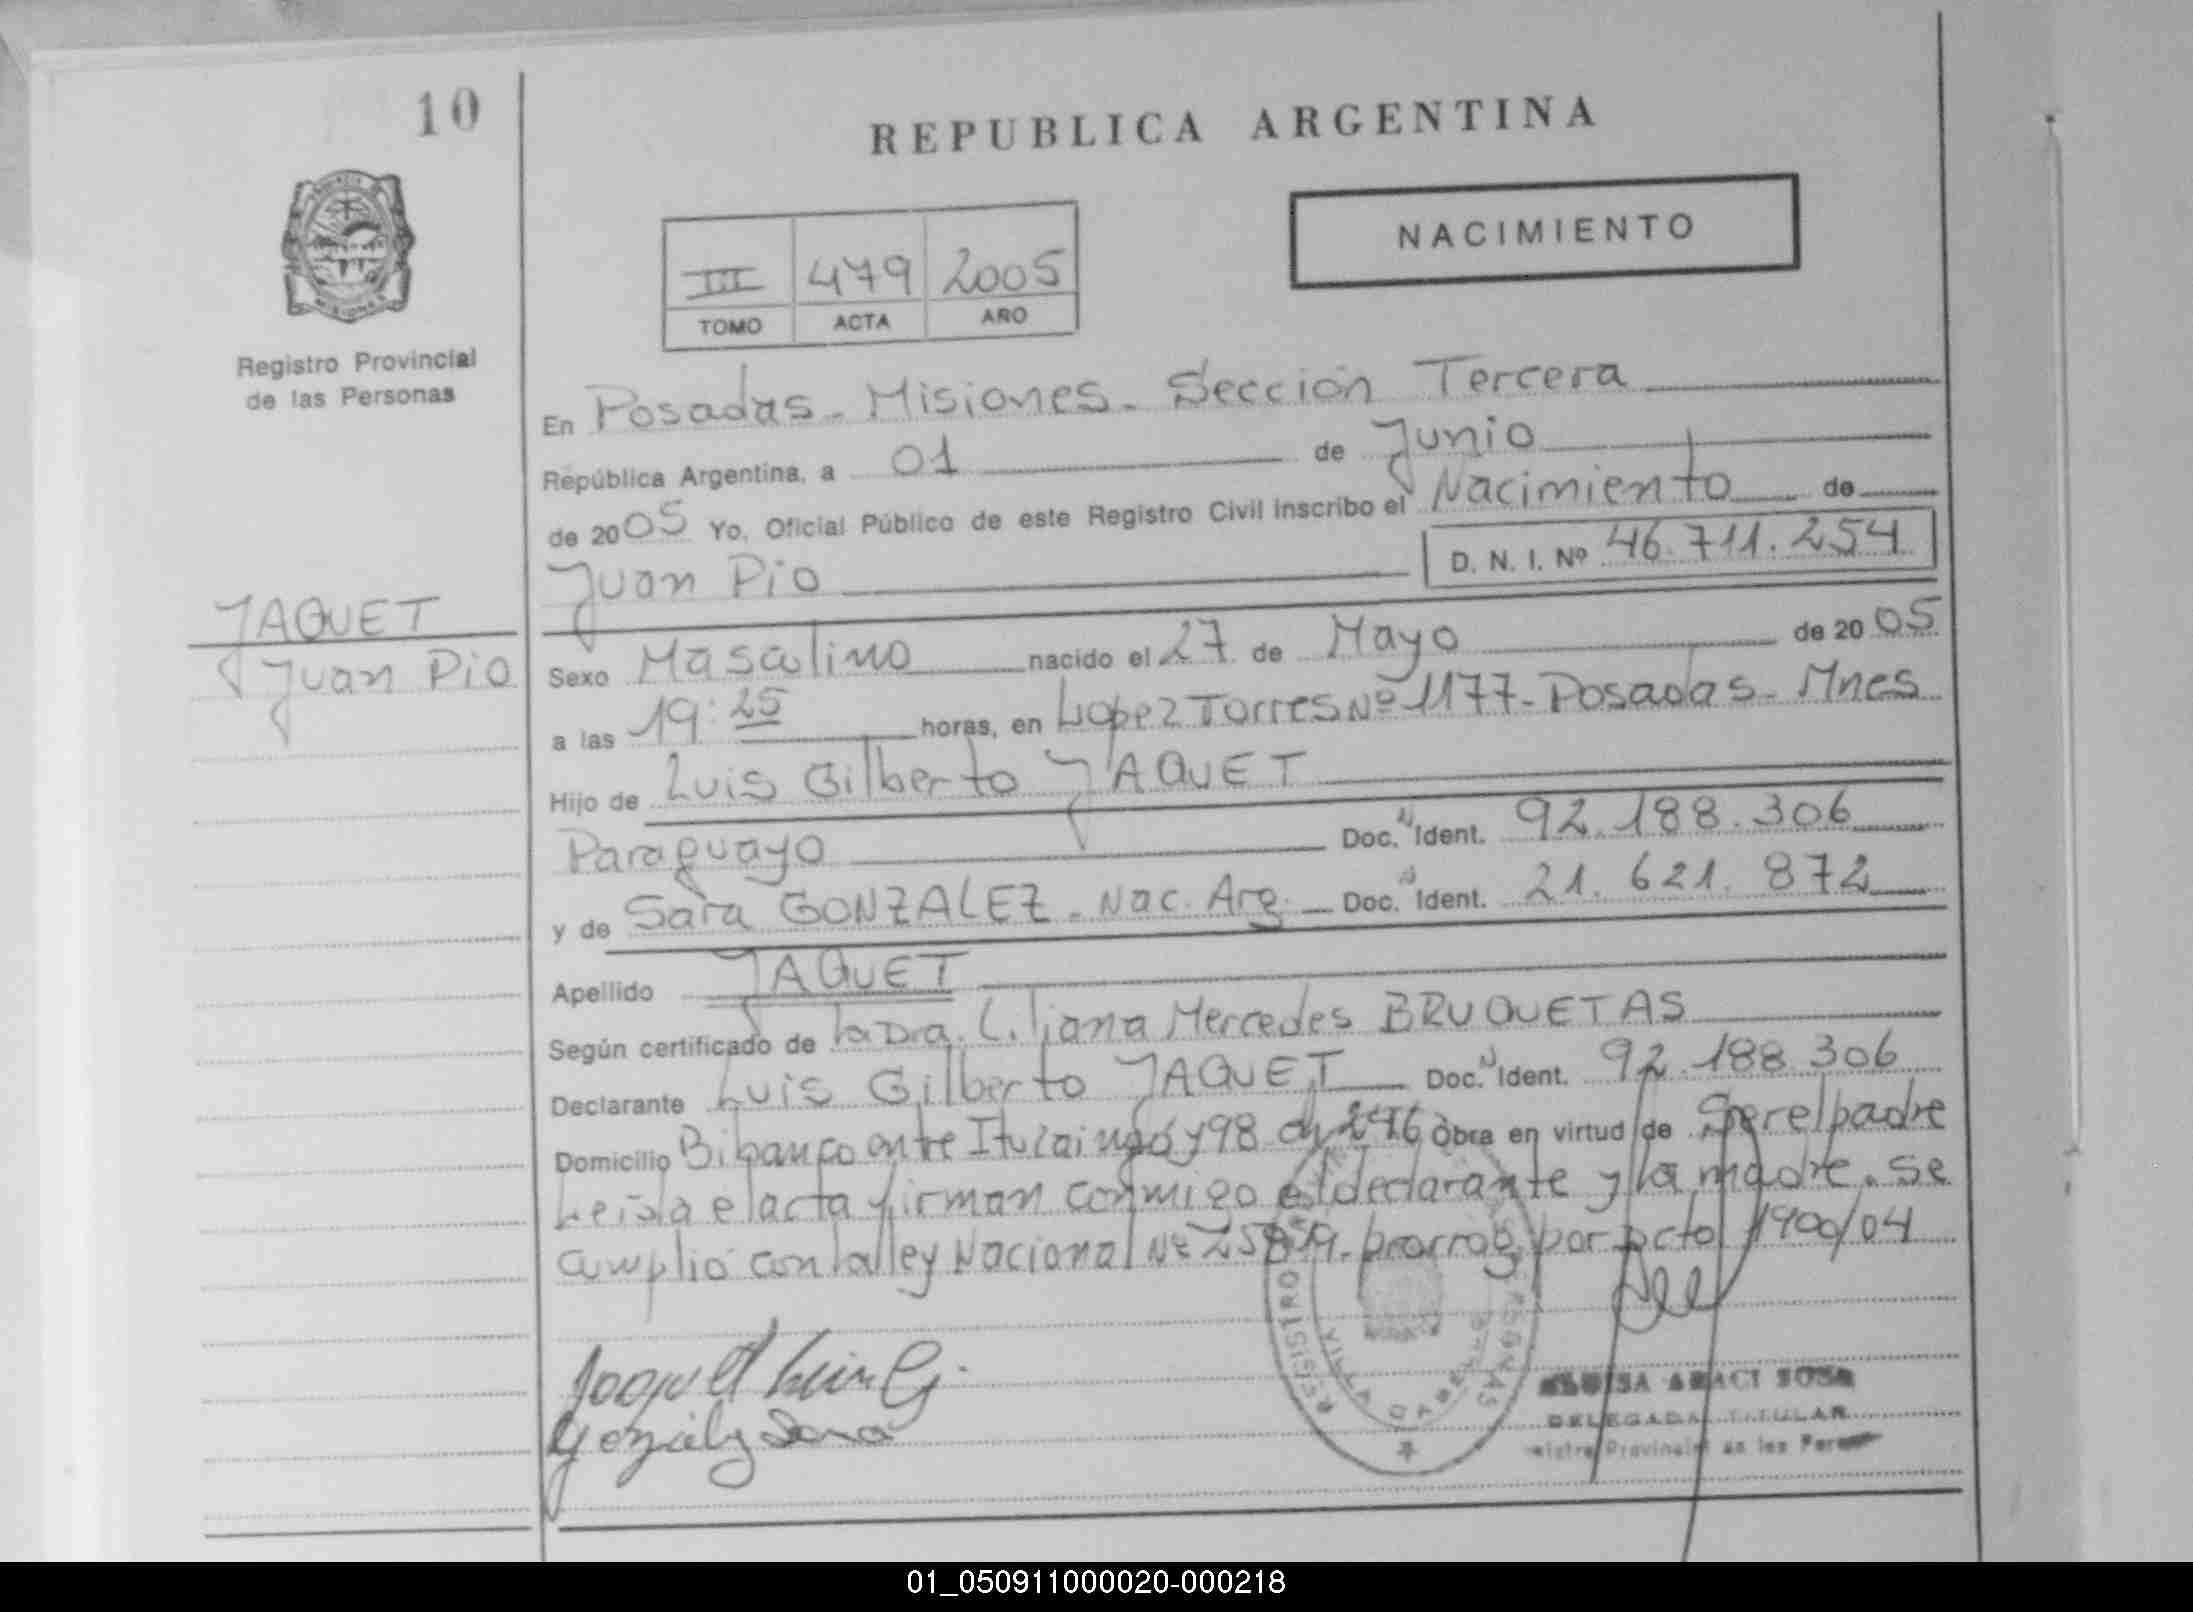 10
REPUBLICA ARGENTINA
NACIMIENTO
III 479 2005
TOMO ACTA AÑO
Registro Provincial
de las Personas
En Posadas - Misiones - Sección Tercera
República Argentina, a 01 de Junio
de 2005 Yo, Oficial Público de este Registro Civil Inscribo el Nacimiento de
Juan Pio D. N. I. Nº 46.711.254
JAQUET
Juan Pio
Sexo Masculino nacido el 27 de Mayo de 2005
a las 19:25 horas, en Lopez Torres Nº 1177 - Posadas - Mnes
Hijo de Luis Gilberto JAQUET
Paraguayo Doc. Ident. 92.188.306
y de Sara GONZALEZ - Nac. Arg. Doc. Ident. 21.621.872
Apellido JAQUET
Según certificado de la Dra. Liliana Mercedes BRUQUETAS
Declarante Luis Gilberto JAQUET Doc. Ident. 92.188.306
Domicilio entre Ituzaingó y 98 Obra en virtud de Ser el padre
Leida el acta firman conmigo el declarante y la madre. Se
cumplió con la ley Nacional Nº prorrog. por Dcto 1900/04
Jaquet Luis G.
Gonzalez Sara
REGISTRO
VILLA
ARACI SOSA
DELEGADA TITULAR
Provincial de las
01_050911000020-000218